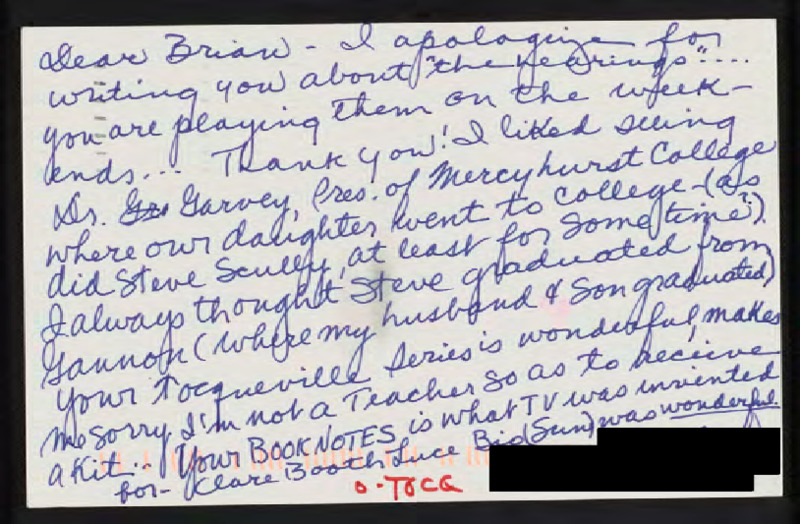 Dear Brian - I apologize for
writing you about "the hearings"....
you are playing them on the week-
ends... Thank you! I liked seeing
Dr. Garvey, Pres. of Mercyhurst College
where our daughter went to college - (as
did Steve Scully, at least for some time?).
I always thought Steve graduated from
Gannon (where my husband & son graduated)
Your Tocqueville Series is wonderful, makes
me sorry I'm not a Teacher so as to receive
a Kit.. Your BOOKNOTES is what TV was invented
for - Clare Booth Luce Bio (Sun) was wonderful.
0-TOCQ